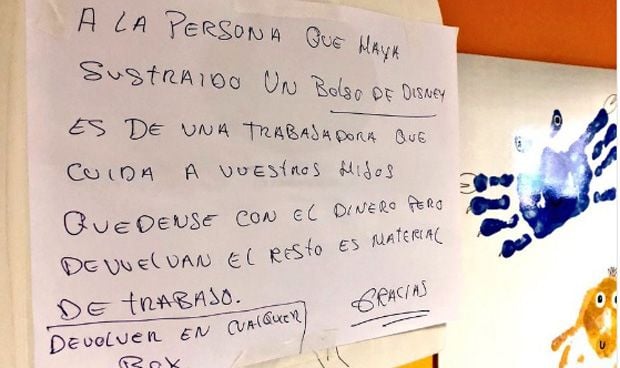 A LA PERSONA QUE HAYA
SUSTRAIDO UN BOLSO DE DISNEY
ES DE UNA TRABAJADORA QUE
CUIDA A VUESTROS HIJOS
QUEDENSE CON EL DINERO PERO
DEVUELVAN EL RESTO ES MATERIAL
DE TRABAJO.
GRACIAS
DEVOLVER EN CUALQUIER
BOX